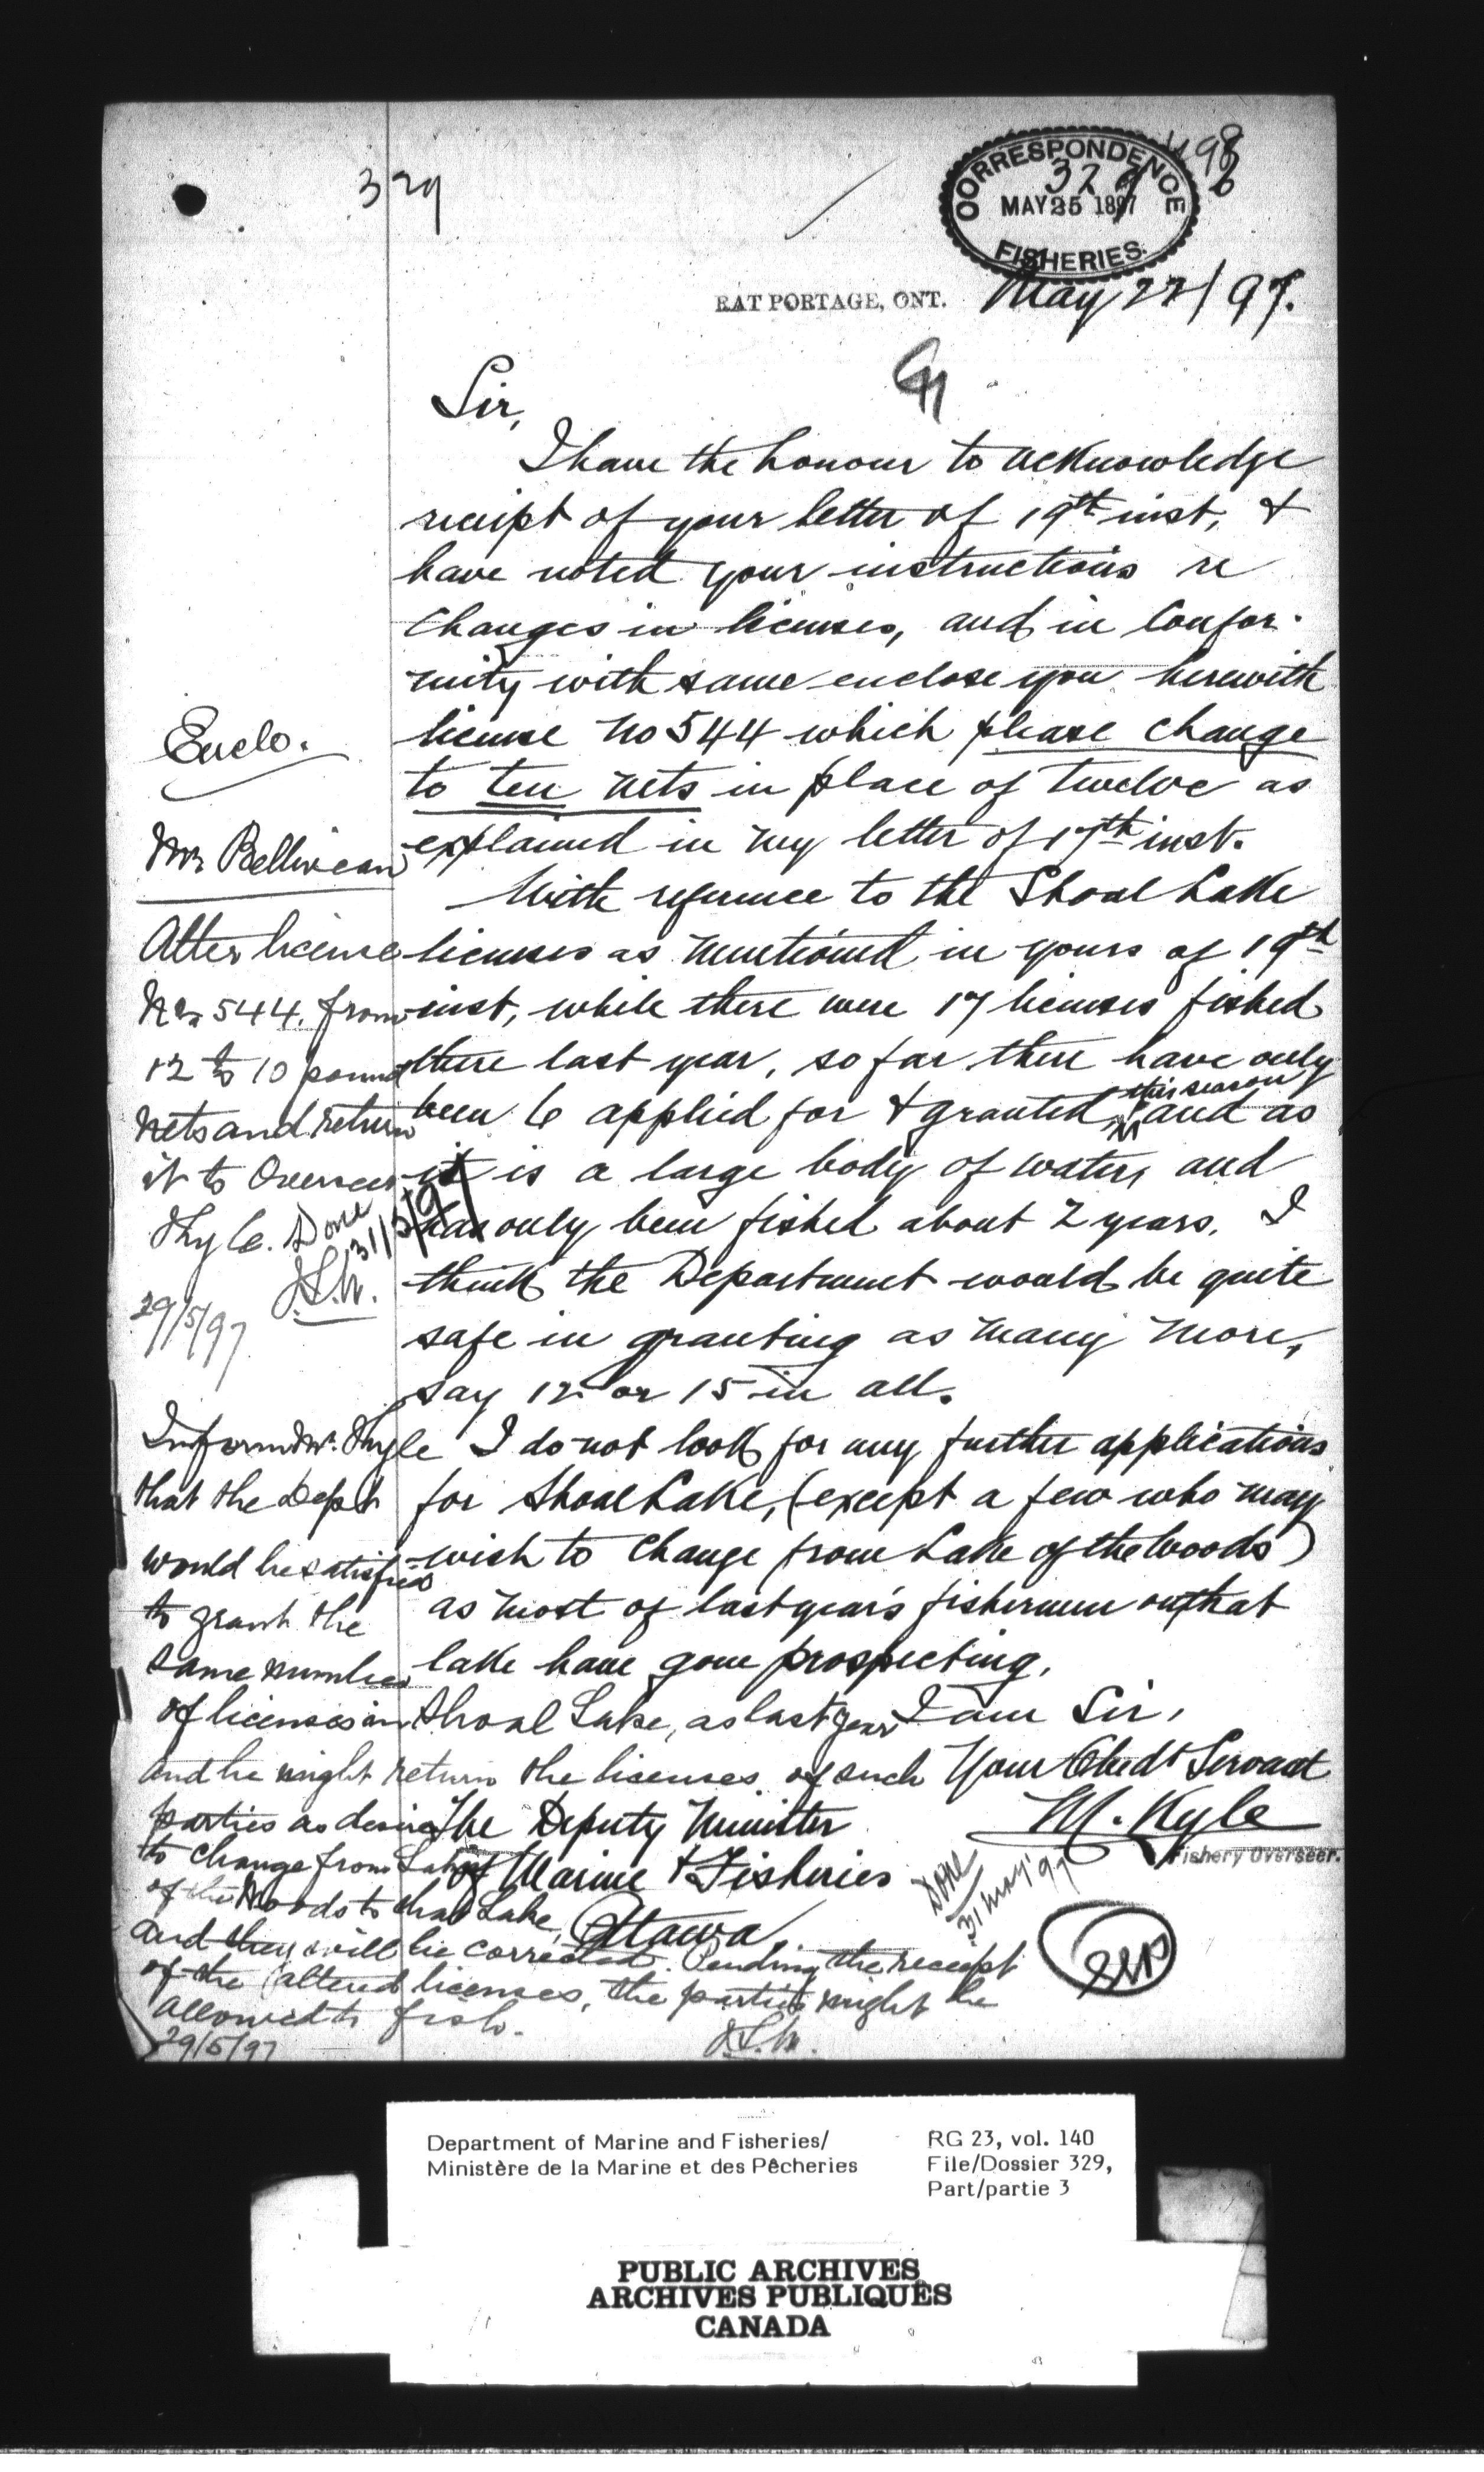 329
498
CORRESPONDENCE
329
MAY 25 1897
FISHERIES.
RAT PORTAGE, ONT. May 22/97.
Sir,
I have the honour to acknowledge
reciept of your letter of 19th inst, &
have noted your instructions re
changes in licenses, and in Confor-
mity with same enclose you herewith
license No 544 which please change
to ten nets in place of twelve as
explained in my letter of 17th inst.
With reference to the Shoal Lake
licenses as mentioned in yours of 19th
inst, while there were 17 licenses fished
there last year, so far there have only
been 6 applied for & granted, this season and as
it is a large body of water, and
has only been fished about 2 years. I
think the Department would be quite
safe in granting as many more,
say 12 or 15 in all.
I do not look for any further applications
for Shoal Lake, (except a few who may
wish to Change from Lake of the Woods)
as most of last year's fishermen on that
lake have gone prospecting.
I am Sir,
Your Obedt Servant
M. Kyle
Fishery Overseer.
The Deputy Minister
of Marine & Fisheries
Ottawa
Enclo.
Mr Belliveau
Alter license
No 544. from
12 to 10 pound
nets and return
it to Overseer
Kyle. Done
31/5/97
29/5/97
Inform Mr. Kyle
that the Dept
would be satisfied
to grant the
same number
of licenses in Shoal Lake, as last year
and he might return the licenses of such
parties as desire
to change from Lake
of the Woods to that Lake,
and they will be corrected. Pending the receipt
of the altered licenses, the parties might be
allowed to fish.
29/5/97
Done
31 May '97
Department of Marine and Fisheries/
Ministère de la Marine et des Pêcheries
RG 23, vol. 140
File/Dossier 329,
Part/partie 3
PUBLIC ARCHIVES
ARCHIVES PUBLIQUES
CANADA